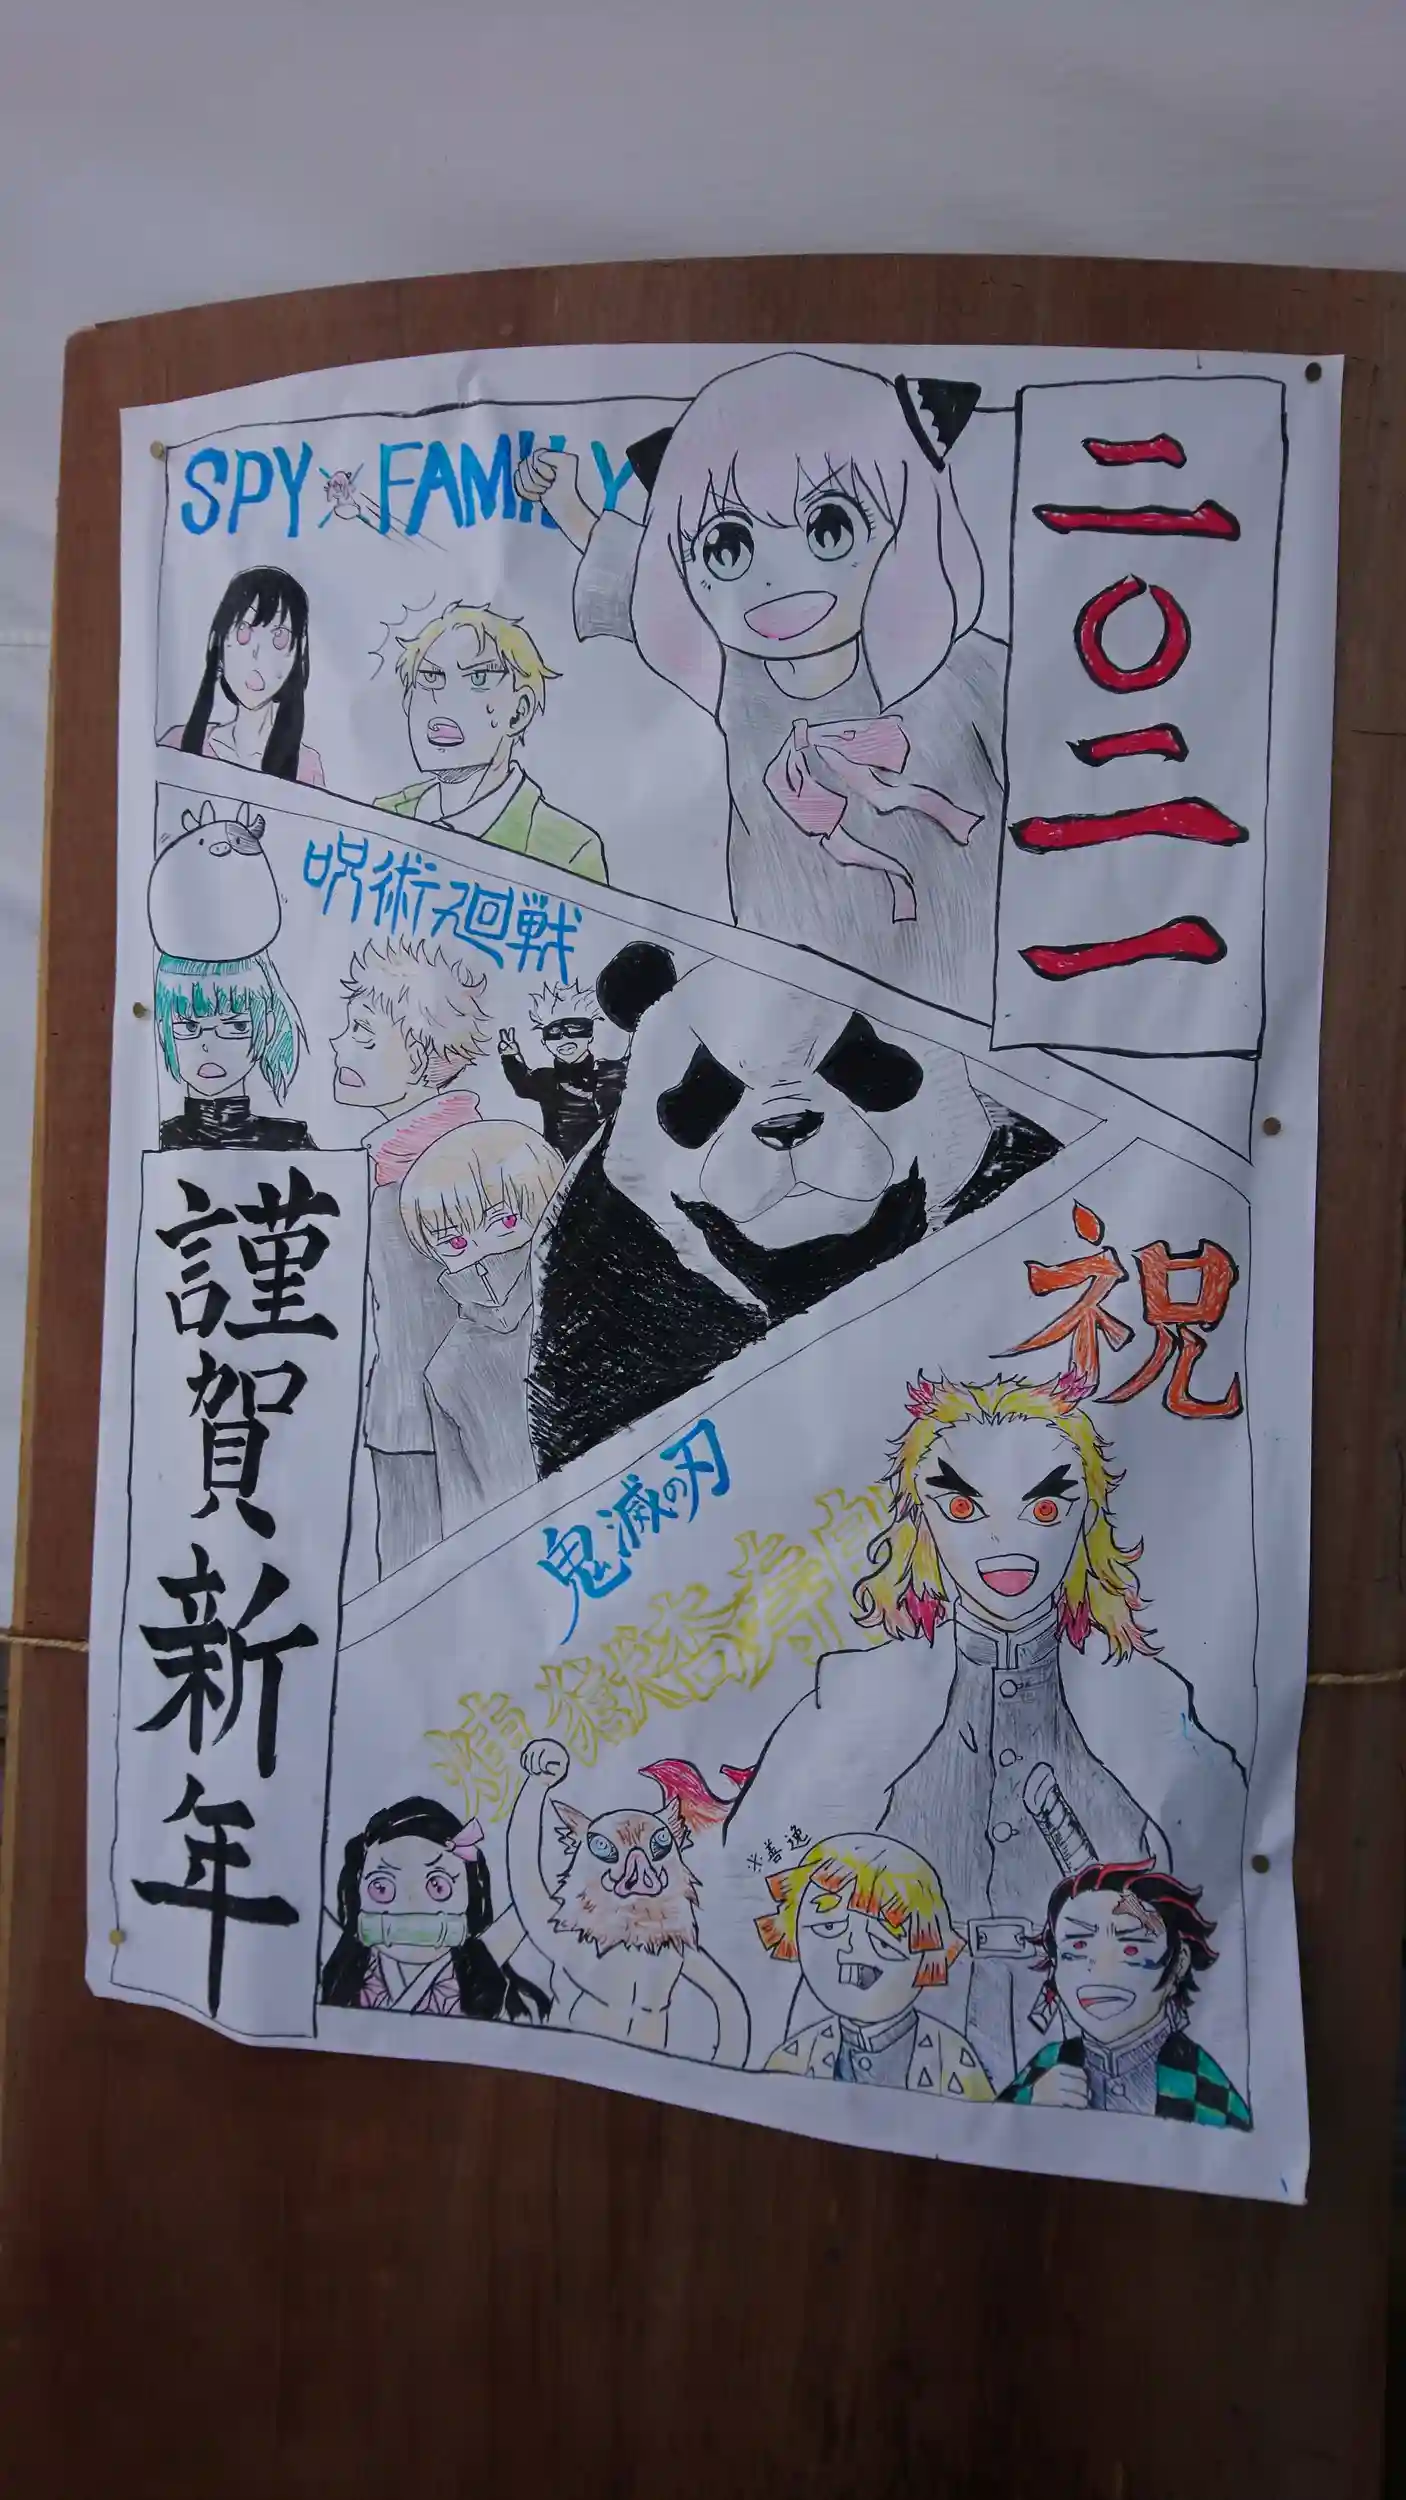 SPY×FAMILY
二〇二一
呪術廻戦
謹賀新年
祝
鬼滅の刃
※善逸